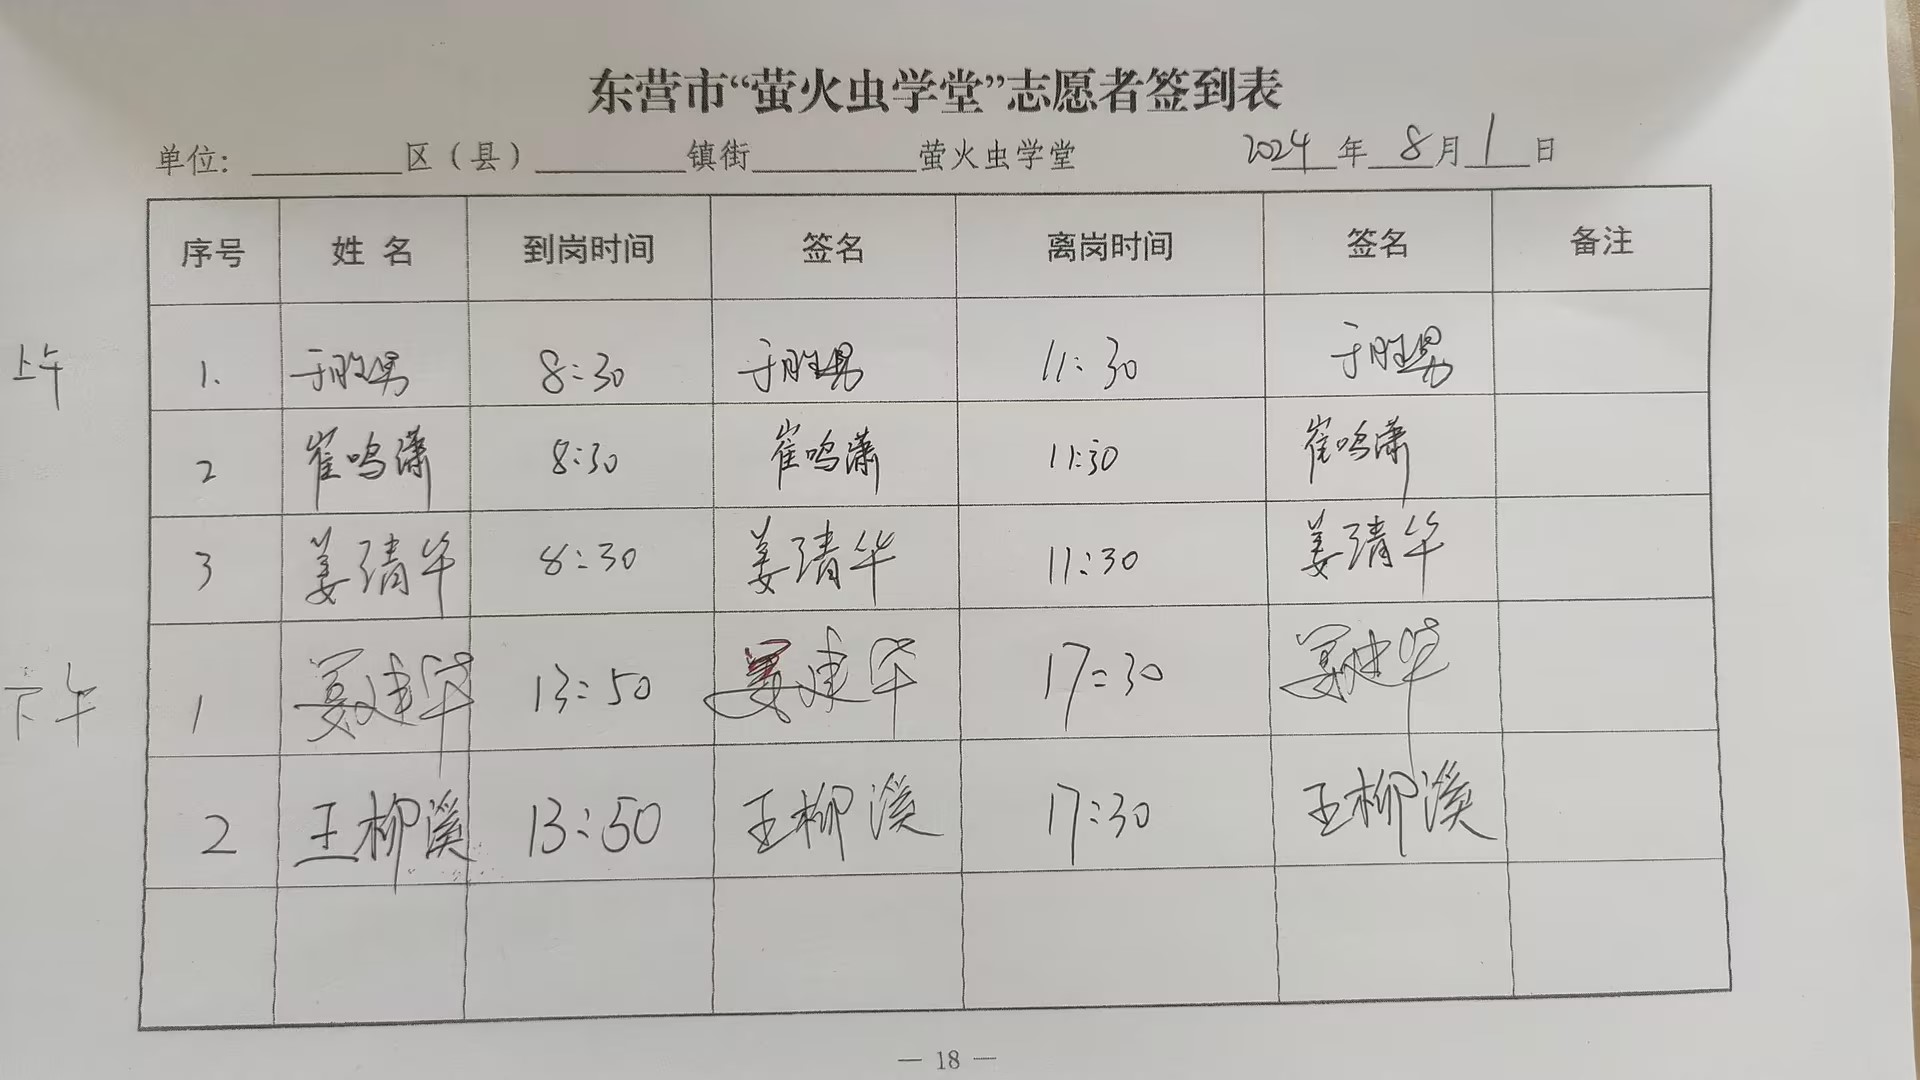 东营市“萤火虫学堂”志愿者签到表
单位：________区（县）________镇街________萤火虫学堂 2024年8月1日
序号 姓名 到岗时间 签名 离岗时间 签名 备注
上午 1. 于胜男 8:30 于胜男 11:30 于胜男
2 崔鸣潇 8:30 崔鸣潇 11:30 崔鸣潇
3 姜清华 8:30 姜清华 11:30 姜清华
下午 1 姜建华 13:50 姜建华 17:30 姜建华
2 王柳溪 13:50 王柳溪 17:30 王柳溪
— 18 —